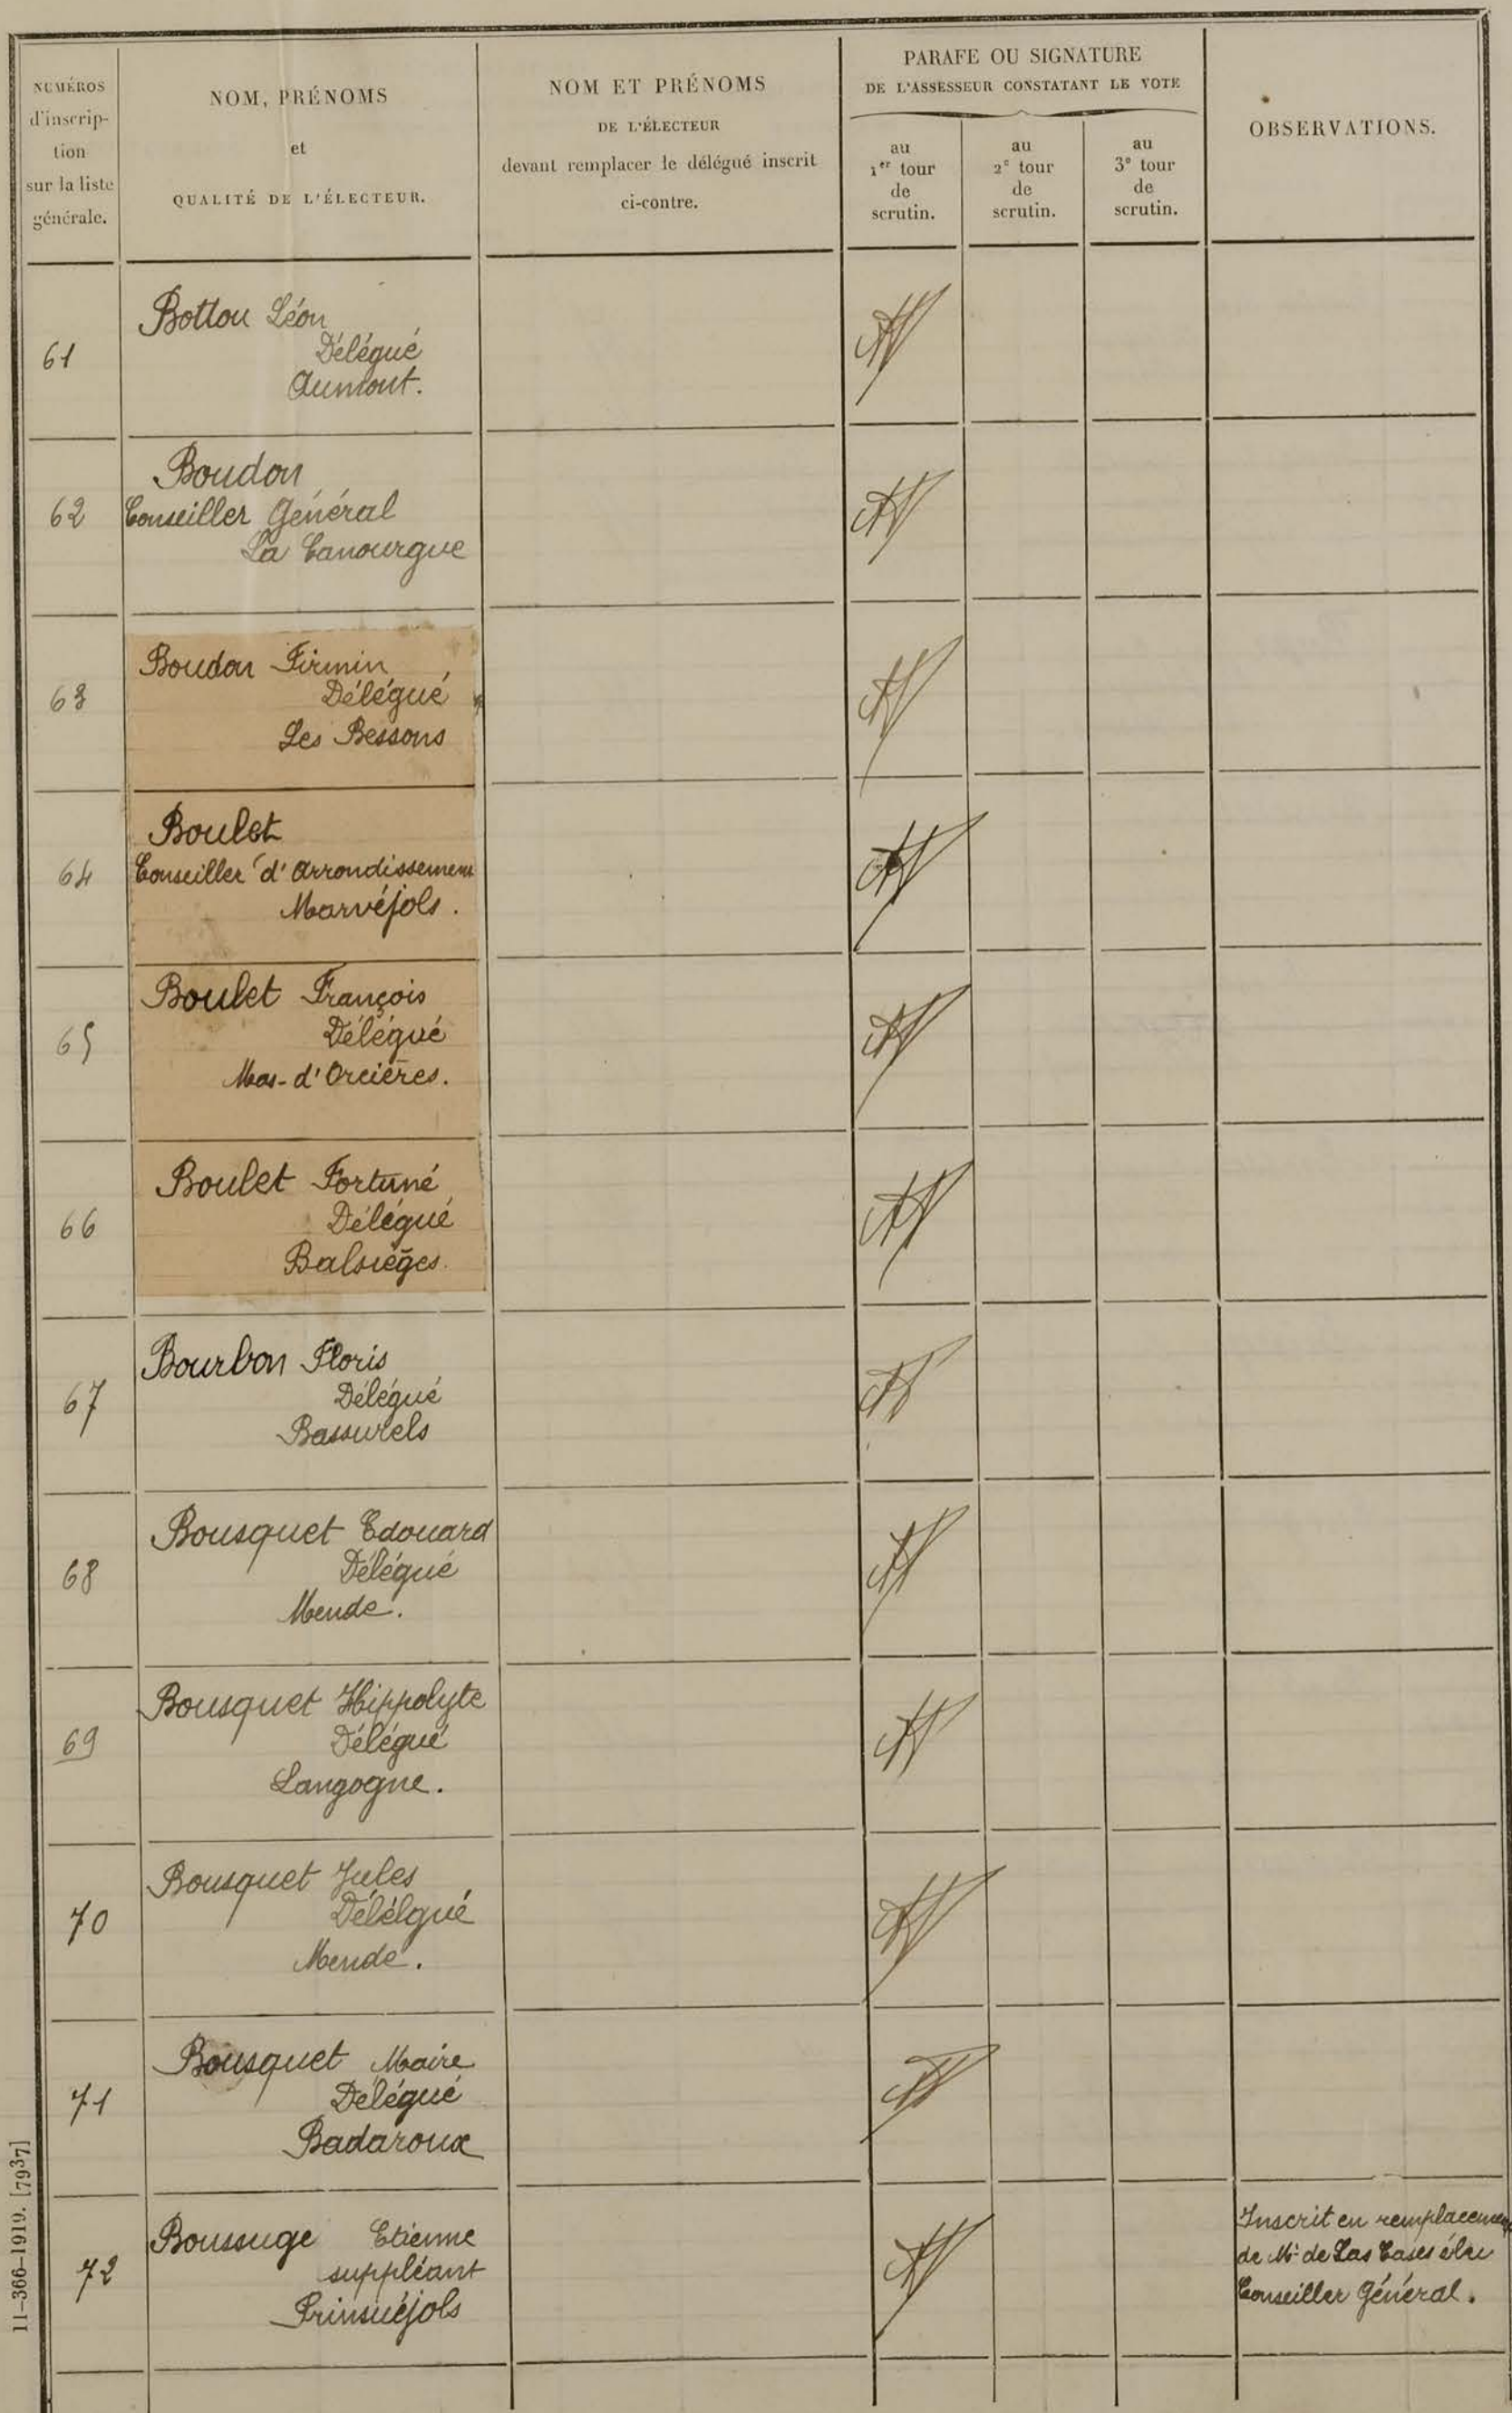 NUMÉROS
d'inscrip-
tion
sur la liste
générale.
NOM, PRÉNOMS
et
QUALITÉ DE L'ÉLECTEUR.
NOM ET PRÉNOMS
DE L'ÉLECTEUR
devant remplacer le délégué inscrit
ci-contre.
PARAFE OU SIGNATURE
DE L'ASSESSEUR CONSTATANT LE VOTE
au
1er tour
de
scrutin.
au
2e tour
de
scrutin.
au
3e tour
de
scrutin.
OBSERVATIONS.
61
Bottou Léon
Délégué
Aumont.
62
Boudon
Conseiller Général
La Canourgue
63
Boudon Firmin
Délégué
Les Bessons
64
Boulet
Conseiller d'Arrondissement
Marvéjols.
65
Boulet François
Délégué
Mas-d'Orcières.
66
Boulet Fortuné
Délégué
Balsièges.
67
Bourbon Floris
Délégué
Bassurels
68
Bousquet Edouard
Délégué
Mende.
69
Bousquet Hippolyte
Délégué
Langogne.
70
Bousquet Jules
Délélgué
Mende.
71
Bousquet Maire
Délégué
Badaroux
72
Boussuge Etienne
suppléant
Prinsuéjols
Inscrit en remplacement
de Mr de Las Cases élu
Conseiller Général.
11-366-1919. [7937]